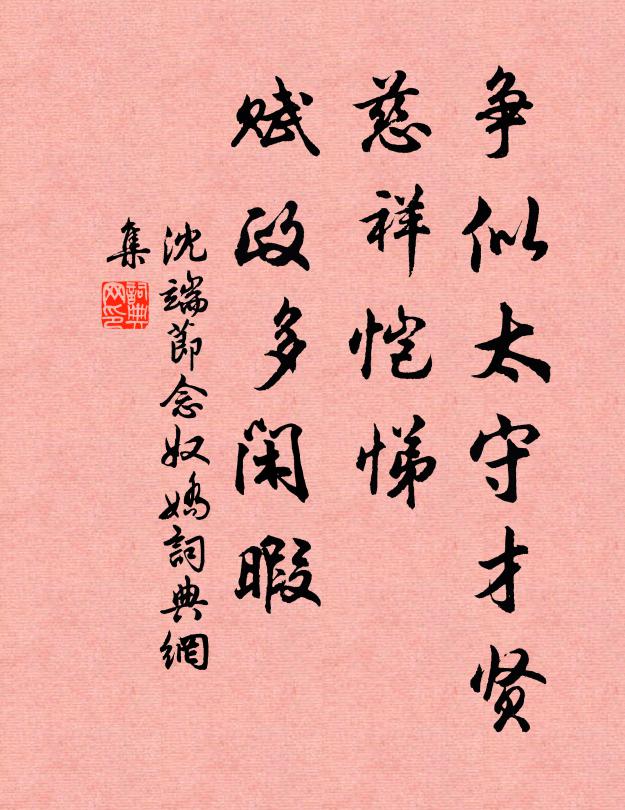 争似太守才贤
慈祥恺悌
赋政多闲暇
沈端节念奴娇詞典網
集
詞典
网印